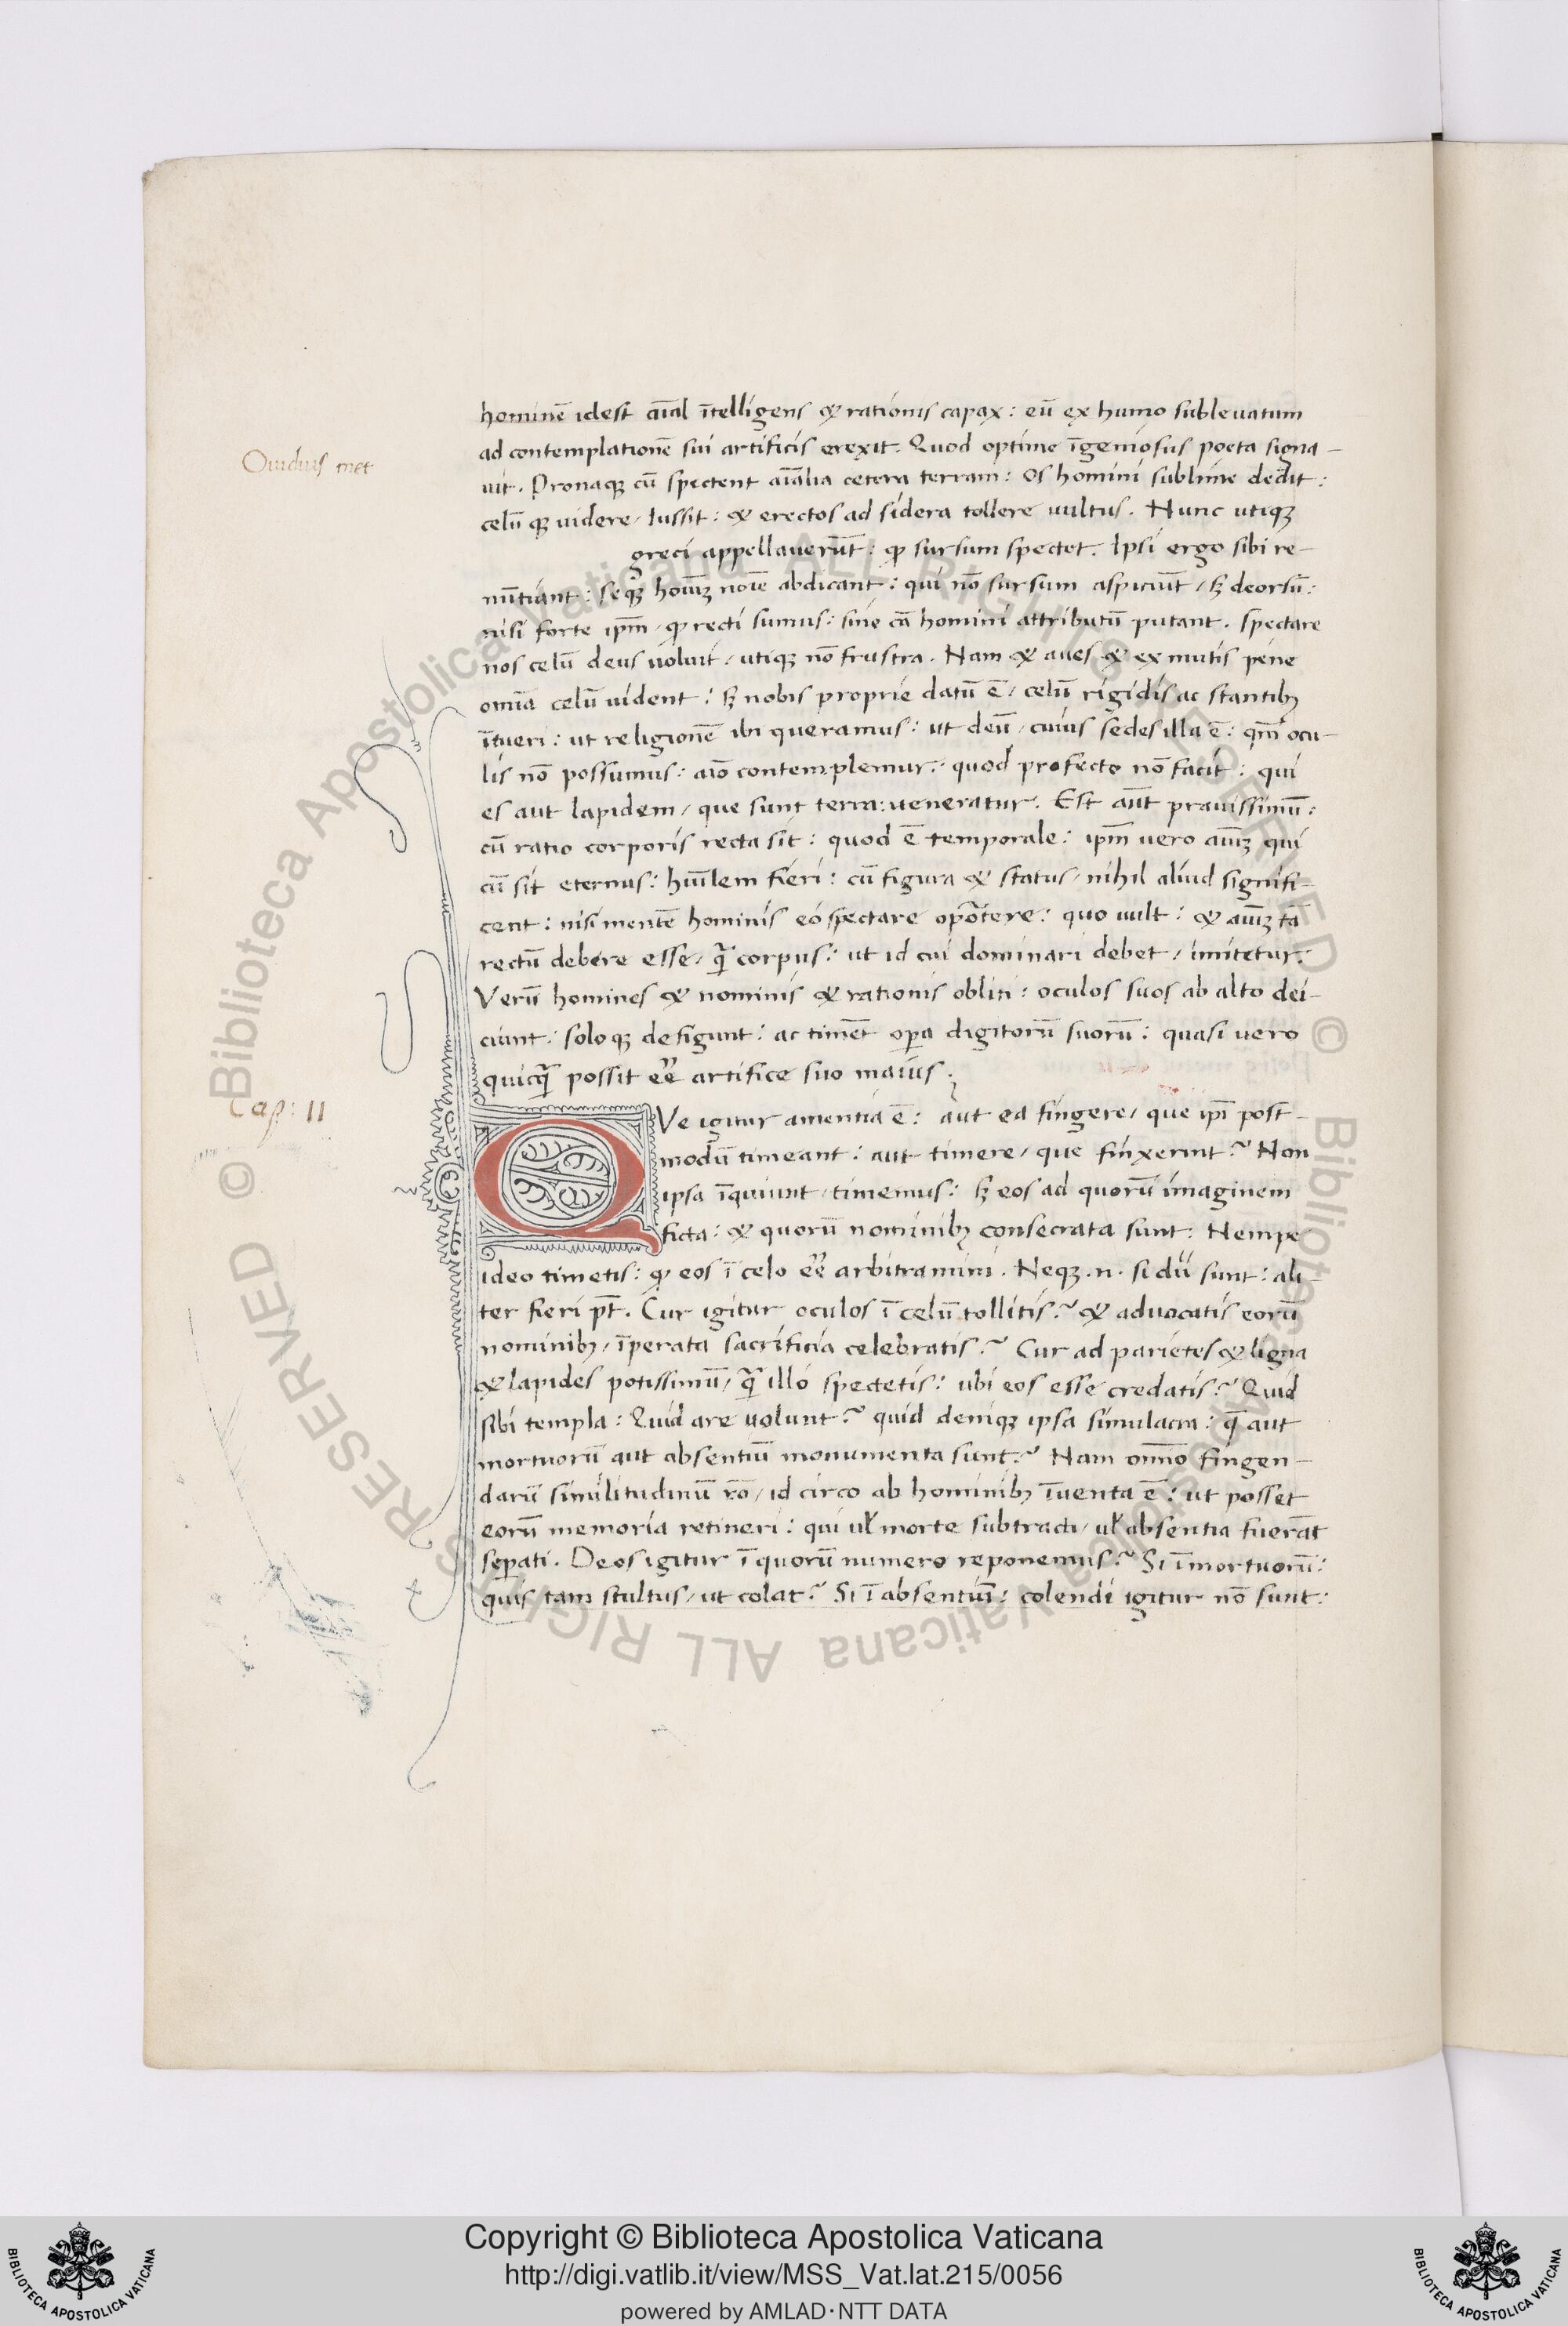 hominē idest aīal ītelligens & rationis capax: eū ex humo sublevatum
ad contemplationē sui artificis erexit. Quod optime īgeniosus poeta signa-
Ouidius met
uit. Pronaqꝫ cū spectent aīalia cetera terram: Os homini sublime dedit:
celū qꝫ uidere, iussit: & erectos ad sidera tollere uultus. Nunc utiqꝫ
greci appellauerūt: ꝙ sursum spectet. Ipsi ergo sibi re-
nūtiant: seqꝫ hoīuꝫ noīe abdicant: qui nō sursum aspiciūt, sꝫ deorsū:
nisi forte ipm̄, ꝙ recti sumus: sine cā homini attributū putant. spectare
nos celū deus uoluit, utiqꝫ nō frustra. Nam & aues & ex mutis pene
omīa celū uident: sꝫ nobis proprie datū ē, celū rigidis ac stantibꝫ
ītueri: ut religionē ibi queramus: ut deū, cuius sedes illa ē: qm̄ ocu-
lis nō possumus: aīo contemplemur: quod profecto nō facit: qui
es aut lapidem, que sunt terra: ueneratur. Est aūt prauissimū:
cū ratio corporis recta sit: quod ē temporale: ipm̄ uero aīuꝫ qui
cū sit eternus: huīlem fieri: cū figura & status, nihil aliud signifi-
cent: nisi mentē hominis eo spectare oportere: quo uult: & aīuꝫ tā
rectū debere esse, qͣ̄ corpus: ut id cui dominari debet, imitetur.
Verū homines & nominis & rationis obliti: oculos suos ab alto dei-
ciunt: solo qꝫ defigunt: ac timēt opa digitorū suorū: quasi uero
quicqͣ̄ possit eē artifice suo maius.
Cap: II
QVe igitur amentia ē: aut ea fingere, que ipī post-
modū timeant: aut timere, que finxerint? Non
ipsa īquiunt, timemus: sꝫ eos ad quorū imaginem
ficta: & quorū nominibꝫ consecrata sunt: Nempe
ideo timetis: ꝙ eos ī celo eē arbitramini. Neqꝫ .n. si dii sunt: ali-
ter fieri pt̄. Cur igitur oculos ī celū tollitis? & aduocatis eorū
nominibꝫ, īperata sacrificia celebratis? Cur ad parietes & ligna
& lapides potissimū, qͣ̄ illo spectetis: ubi eos esse credatis? Quid
sibi templa: Quid are uolunt? quid deniqꝫ ipsa simulacra: q̄ aut
mortuorū aut absentiū monumenta sunt? Nam omīno fingen-
darū similitudinū rō, id circo ab hominibꝫ īuenta ē: ut posset
eorū memoria retineri: qui ul̛ morte subtracti, ul̛ absentia fuerāt
sepati. Deos igitur ī quorū numero reponemus? Si ī mortuorū:
quis tam stultus, ut colat? Si ī absentiū: colendi igitur nō sunt:
Copyright © Biblioteca Apostolica Vaticana
http://digi.vatlib.it/view/MSS_Vat.lat.215/0056
powered by AMLAD·NTT DATA